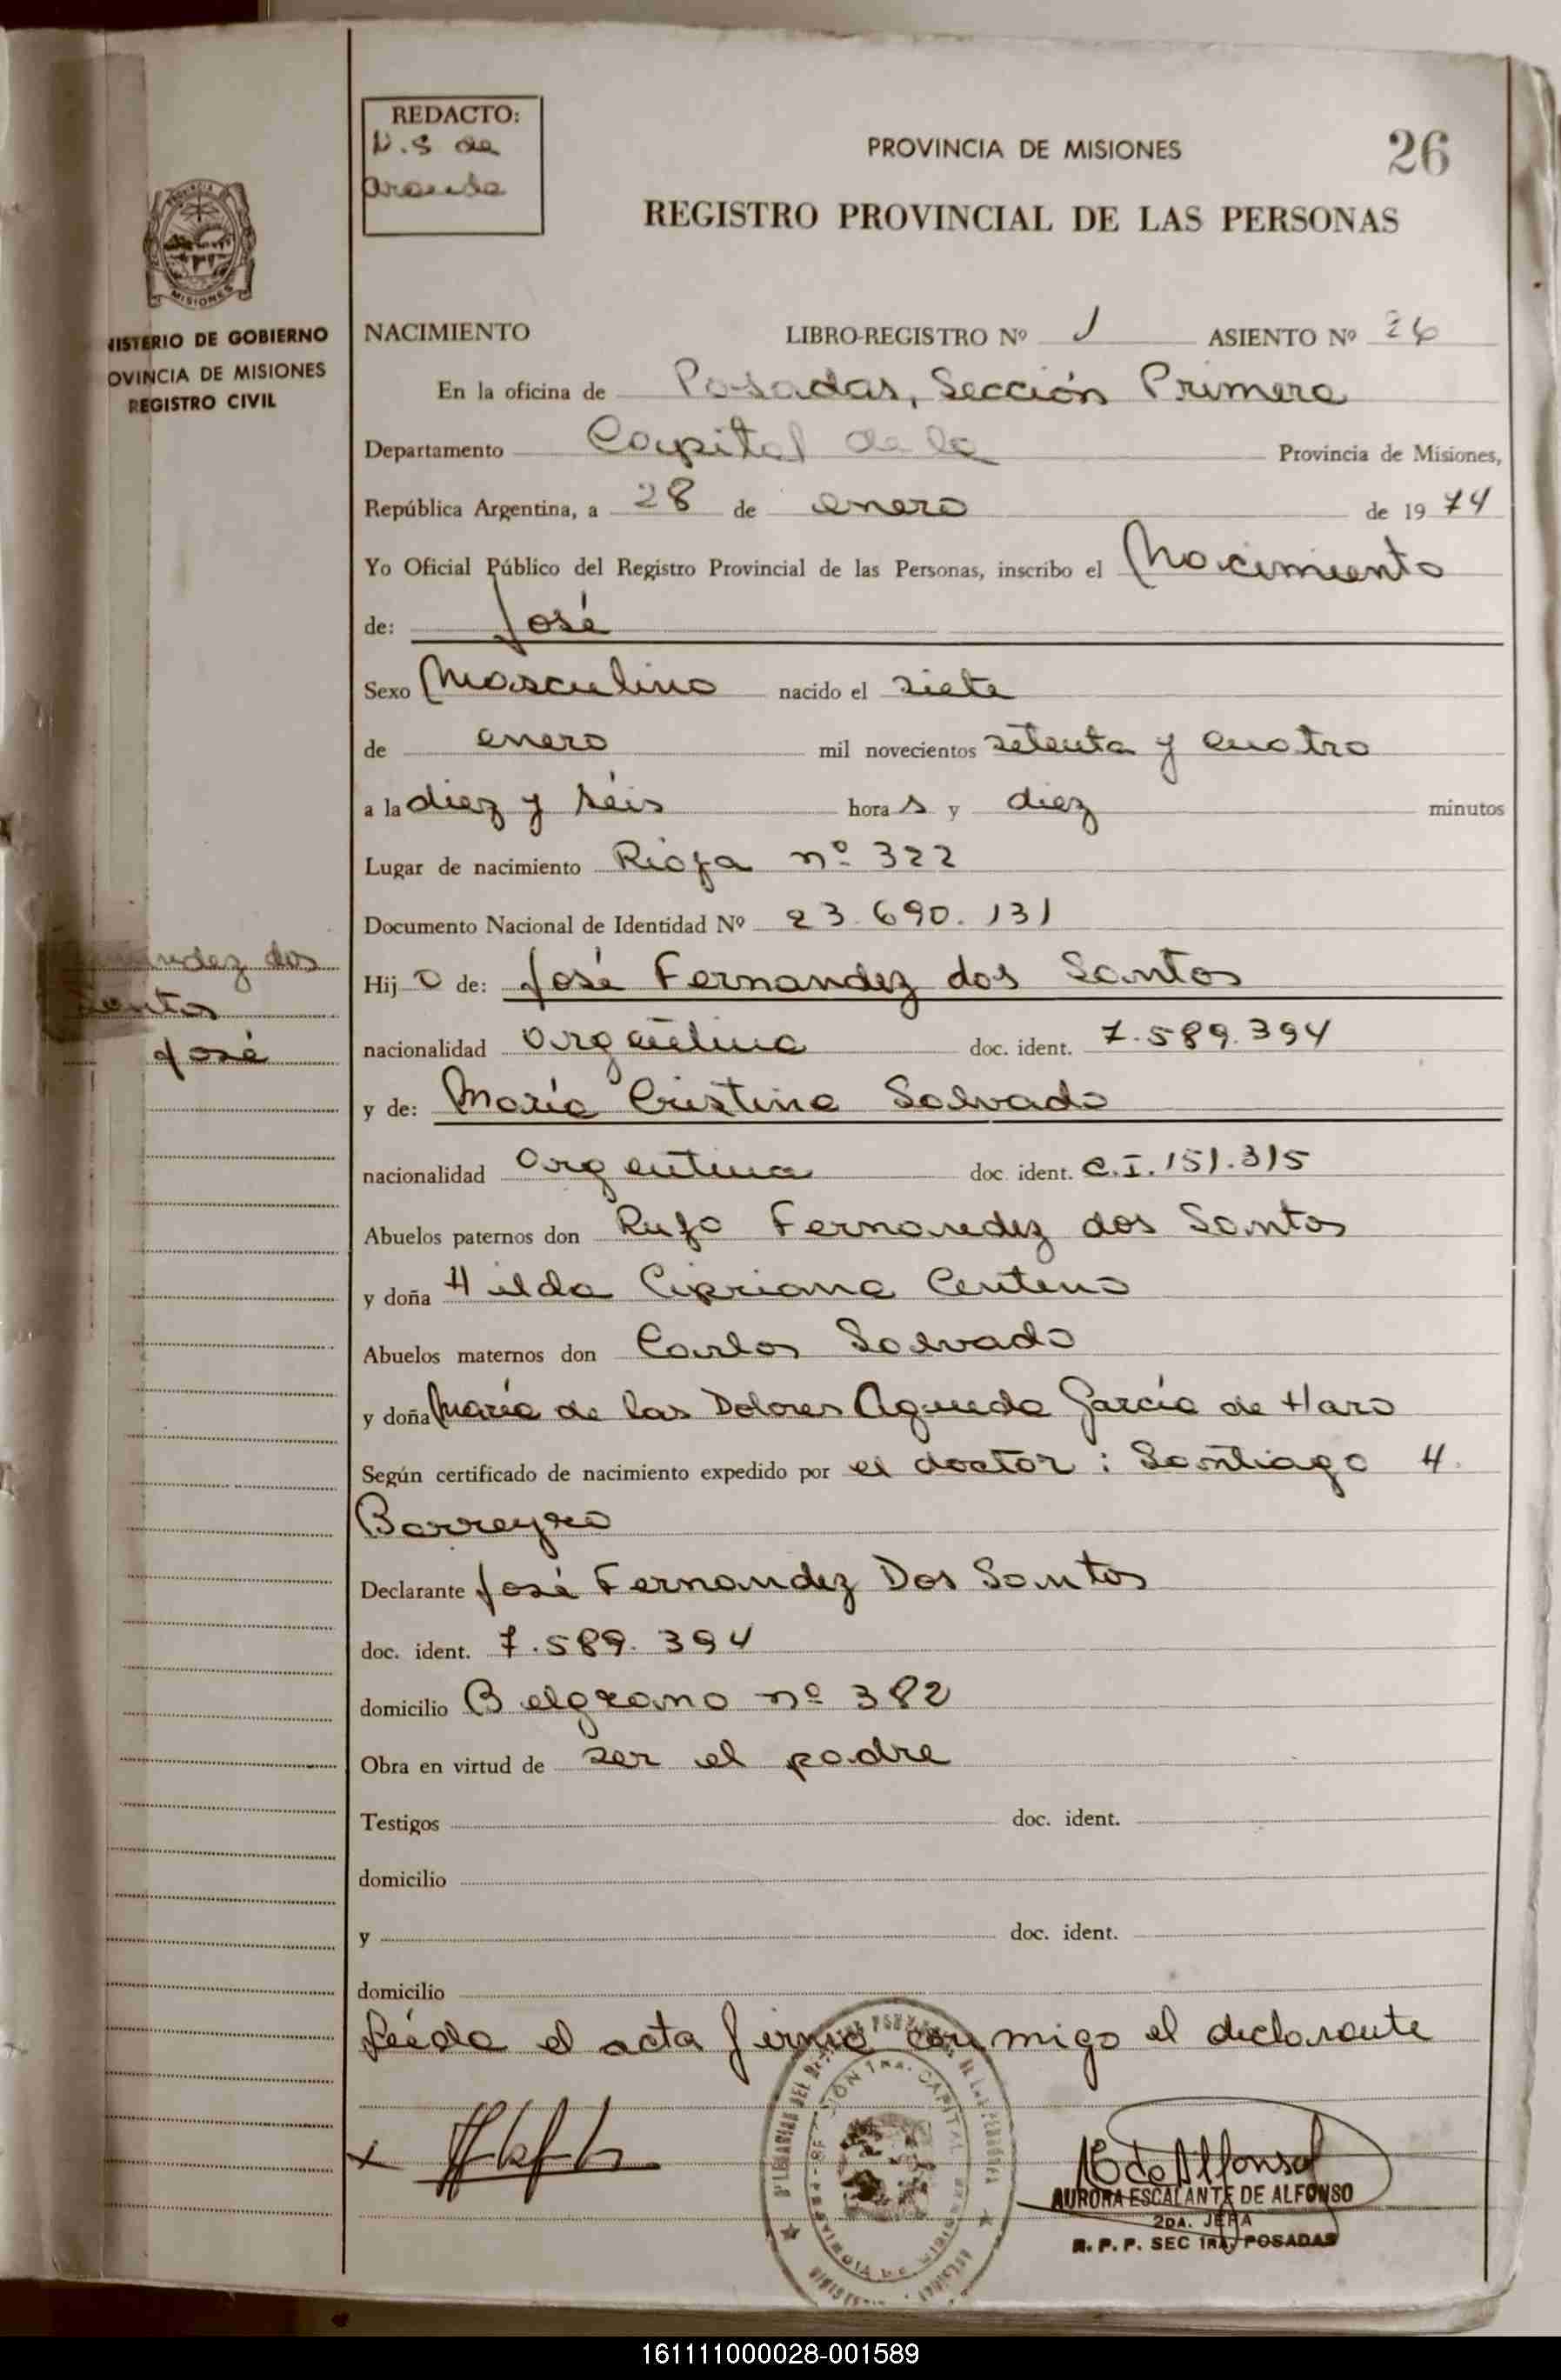 REDACTO:
N.S de
Aranda
PROVINCIA DE MISIONES
26
REGISTRO PROVINCIAL DE LAS PERSONAS
MISIONES
NISTERIO DE GOBIERNO
OVINCIA DE MISIONES
REGISTRO CIVIL
NACIMIENTO LIBRO-REGISTRO Nº 1 ASIENTO Nº 26
En la oficina de Posadas, Sección Primera
Departamento Capital de la Provincia de Misiones,
República Argentina, a 28 de enero de 1974
Yo Oficial Público del Registro Provincial de las Personas, inscribo el Nacimiento
de: José
Sexo Masculino nacido el siete
de enero mil novecientos setenta y cuatro
a la diez y séis horas y diez minutos
Lugar de nacimiento Rioja nº 322
Documento Nacional de Identidad Nº 23.690.131
Hijo de: José Fernandez dos Santos
nacionalidad Argentina doc. ident. 7.589.394
y de: María Cristina Salvado
nacionalidad Argentina doc. ident. C.I. 151.315
Abuelos paternos don Rufo Fernandez dos Santos
y doña Hilda Cipriana Centeno
Abuelos maternos don Carlos Salvado
y doña María de las Dolores Agueda García de Haro
Según certificado de nacimiento expedido por el doctor: Santiago H.
Barreyro
Declarante José Fernandez Dos Santos
doc. ident. 7.589.394
domicilio Belgrano nº 382
Obra en virtud de ser el padre
Testigos doc. ident.
domicilio
y doc. ident.
domicilio
Leída el acta firma conmigo el declarante
ndez dos
Santos
José
x
AURORA ESCALANTE DE ALFONSO
2DA. JEFA
R. P. P. SEC 1RA. POSADAS
161111000028-001589